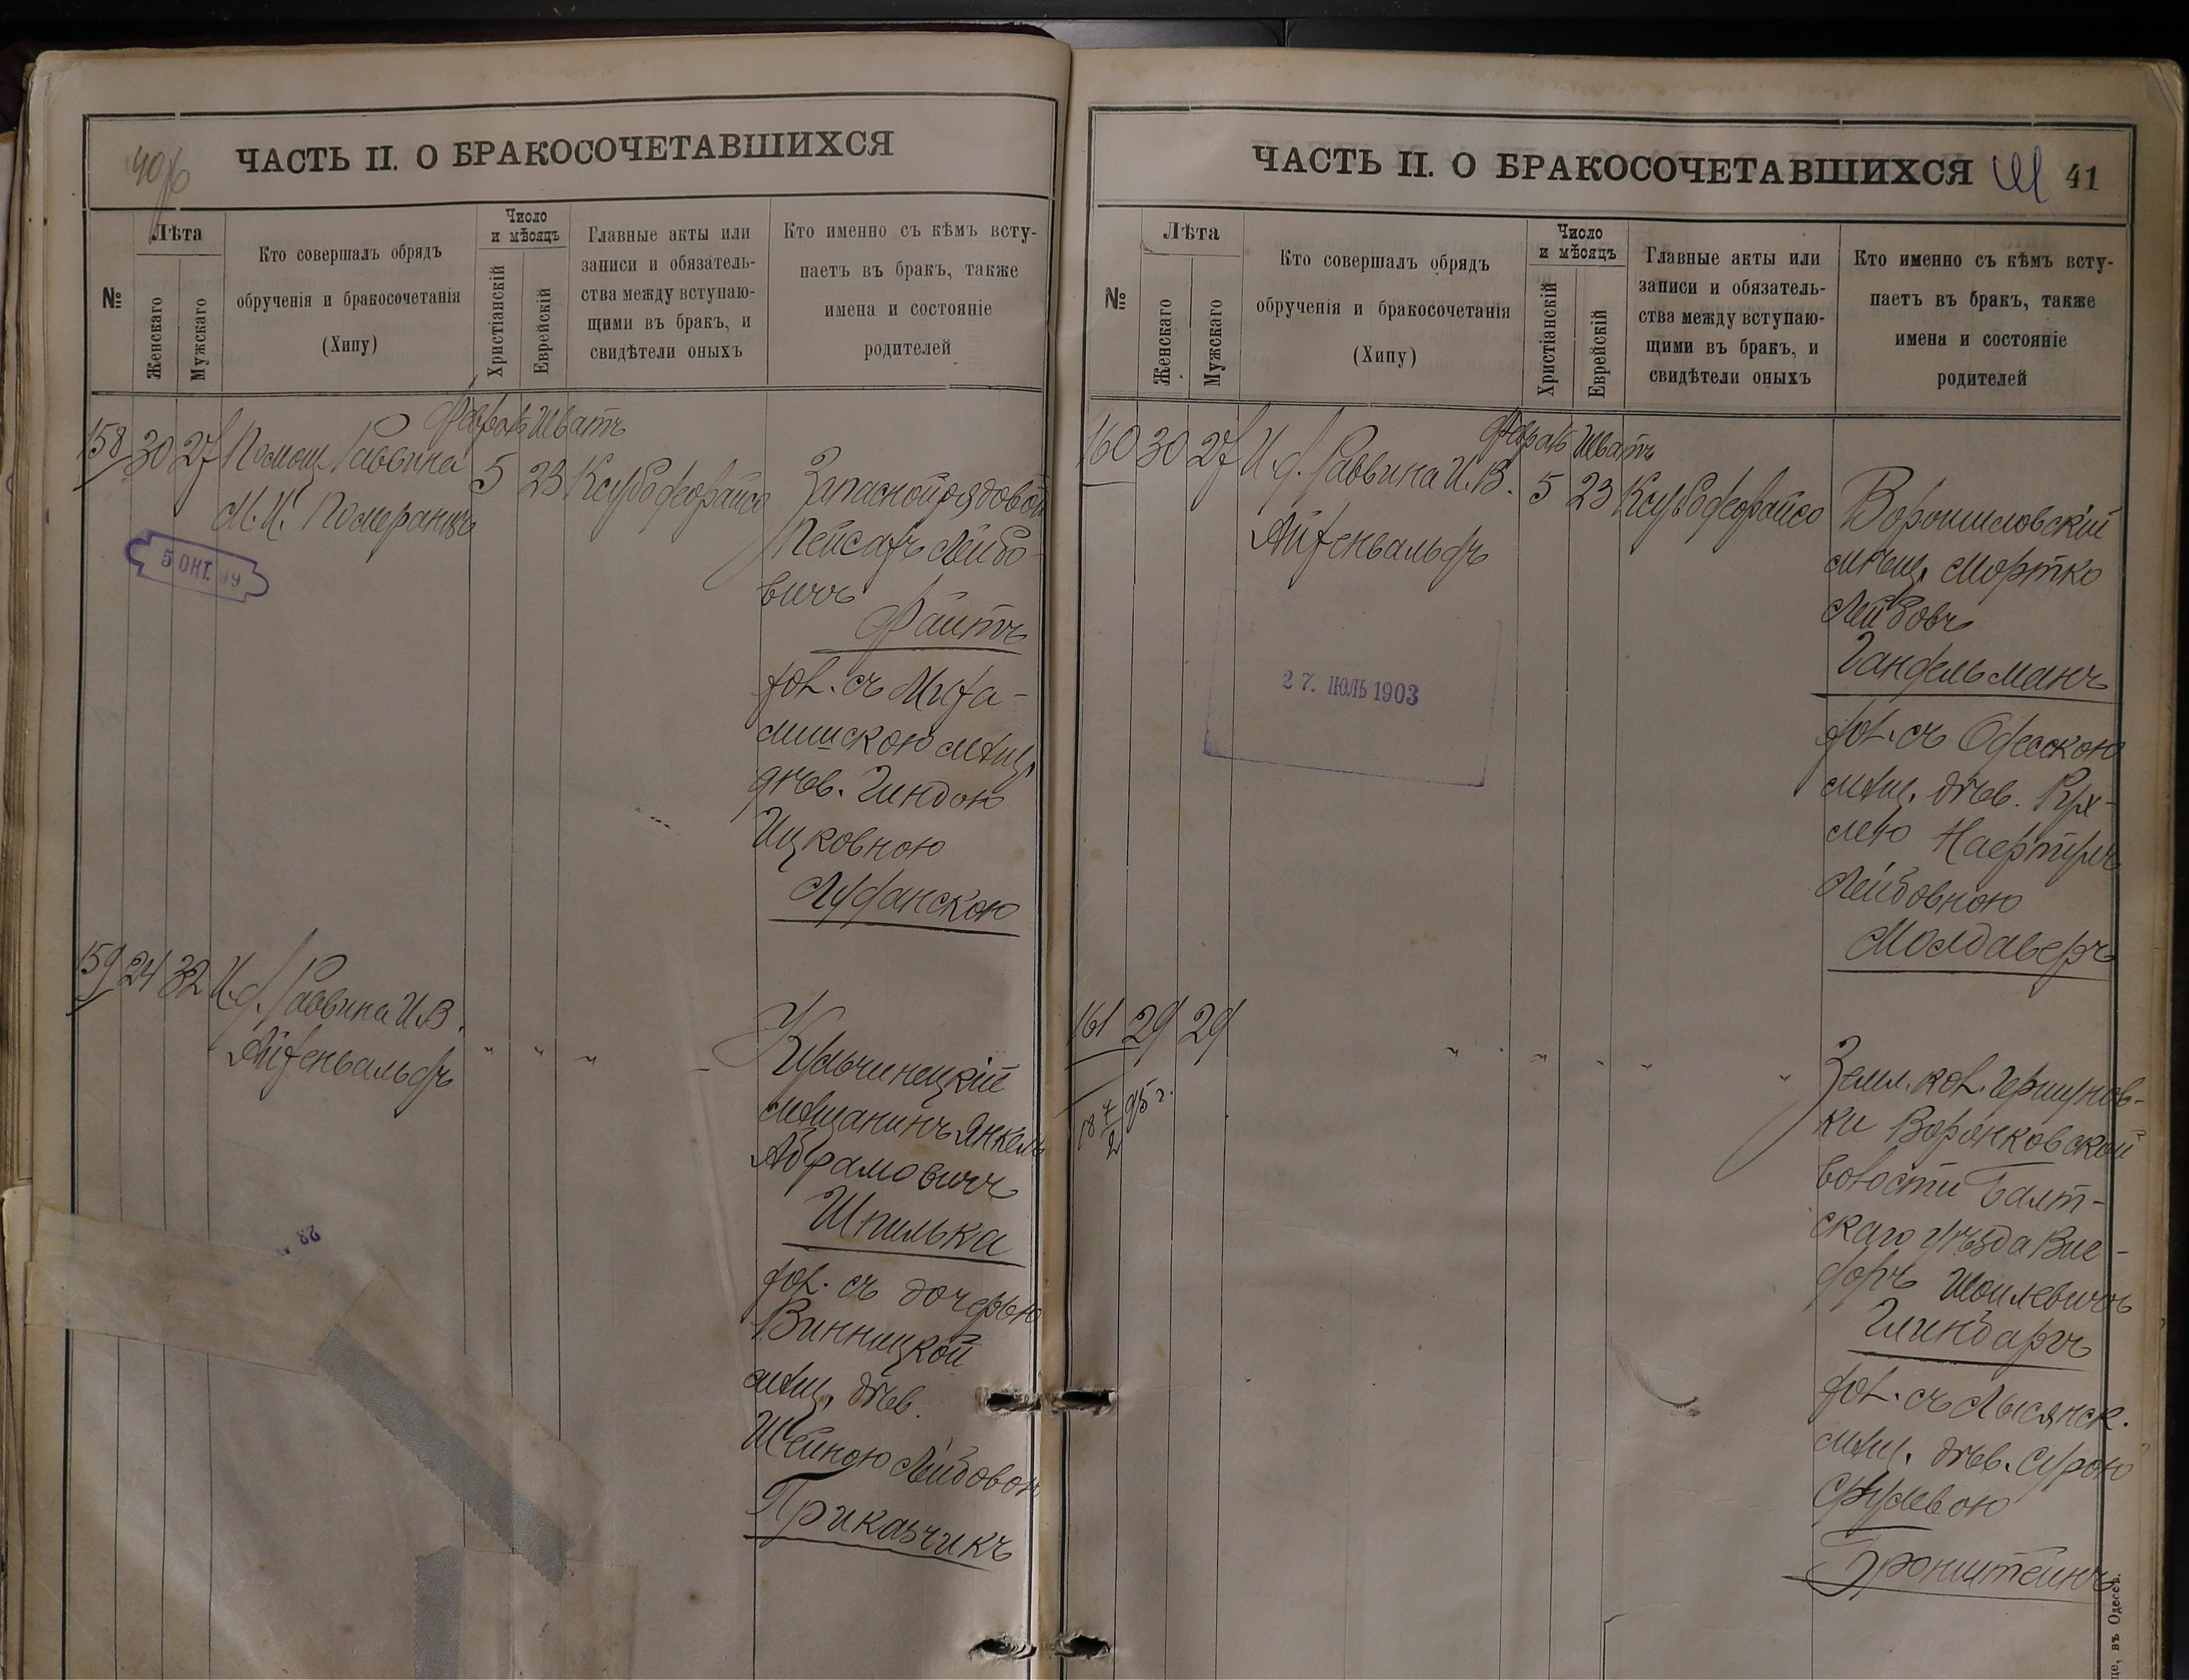 ЧАСТЬ II. О БРАКОСОЧЕТАВШИХСЯ
№
Лѣта
Женскаго
Мужскаго
Кто совершалъ обрядъ
обрученія и бракосочетанія
(Хипу)
Число
и мѣсяцъ
Христіанскій
Еврейскій
Главные акты или
записи и обязатель-
ства между вступаю-
щими въ бракъ, и
свидѣтели оныхъ
Кто именно съ кѣмъ всту-
паетъ въ бракъ, также
имена и состояніе
родителей
Февраль Шватъ
158 30 27 Помощ. Раввина 5 23
М. И. Померанцъ
5 ОКТ. 99
Запасной рядовой
Пейсахъ Лейбо-
вичъ
Файтъ
хол. съ
мѣщ.
дѣв. Гиндою
Ицковною
159 24 32 И. д. Раввина И. В.
Айзенвальдъ " " "
Кульчинецкій
мѣщанинъ Янкель
Абрамовичъ
Шпилька
хол. съ дочерью
Винницкой
мѣщ. дѣв.
Шейною Лейбовою
Приказчикъ
ЧАСТЬ II. О БРАКОСОЧЕТАВШИХСЯ 41
№
Лѣта
Женскаго
Мужскаго
Кто совершалъ обрядъ
обрученія и бракосочетанія
(Хипу)
Число
и мѣсяцъ
Христіанскій
Еврейскій
Главные акты или
записи и обязатель-
ства между вступаю-
щими въ бракъ, и
свидѣтели оныхъ
Кто именно съ кѣмъ всту-
паетъ въ бракъ, также
имена и состояніе
родителей
Февраль Шватъ
160 30 27 И. д. Раввина И. В. 5 23
Айзенвальдъ
27. ІЮЛЬ 1903
Ворошиловскій
мѣщ. Мортко
Лейбовъ
Гандельманъ
хол. съ Одесскою
мѣщ. дѣв. Рух-
лею
Лейбовною
Молдаверъ
161 29 29 " " " " "
Земл. кол. Гершунов-
ки Воронковской
волости Балт-
скаго уѣзда Виг-
доръ Шоилевичъ
хол. съ Лысянск.
мѣщ. дѣв. Сурою
Срулевою
Бронштейнъ
въ Одессѣ.